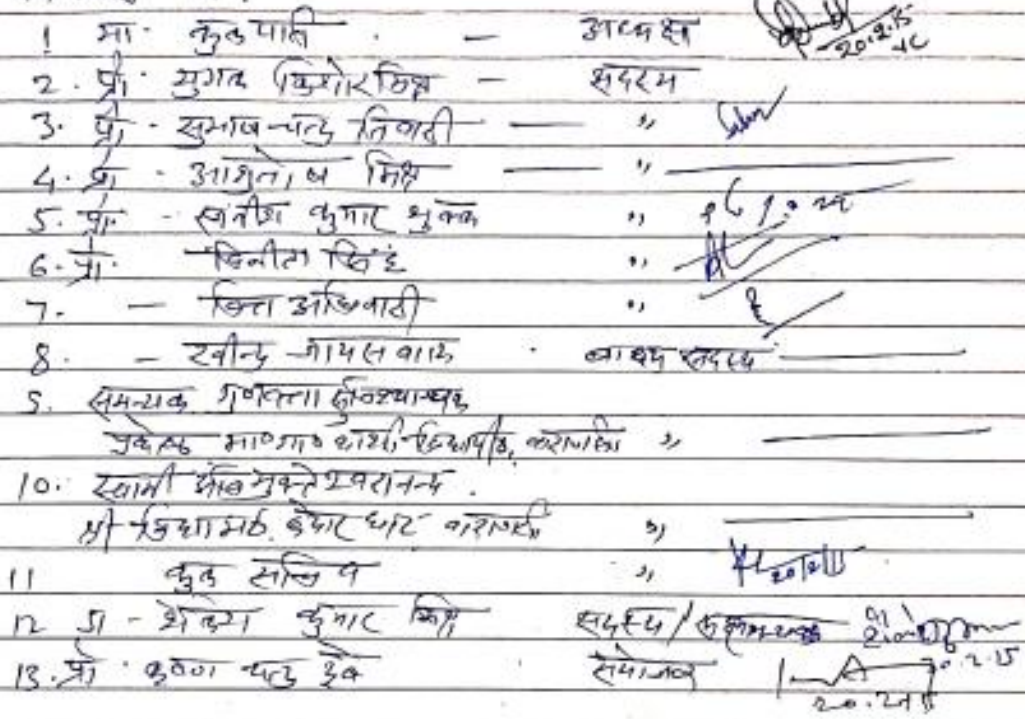 1 मा. कुलपति - अध्यक्ष 20.2.15 VC
2. प्रो. युगल किशोर मिश्र - सदस्य
3. प्रो. सुभाष चन्द्र तिवारी — ,,
4. प्रो. आशुतोष मिश्र — ,,
5. प्रो. - कुमार शुक्ल ,,
6. प्रो. विनीता सिंह ,,
7. - वित्त अधिकारी ,,
8. - रवीन्द्र जायसवाल . बाह्य सदस्य
9. समन्वयक गुणवत्ता
प्रकोष्ठ म०गा० काशी विद्यापीठ, वाराणसी ,,
10. स्वामी अविमुक्तेश्वरानन्द .
श्री विद्यामठ केदार घाट वाराणसी ,,
11 कुल सचिव ,, 20/2/15
12 डा - शैलेश कुमार मिश्र सदस्य/
13. प्रो. कृष्ण चन्द्र दुबे संयोजक 20.2.15